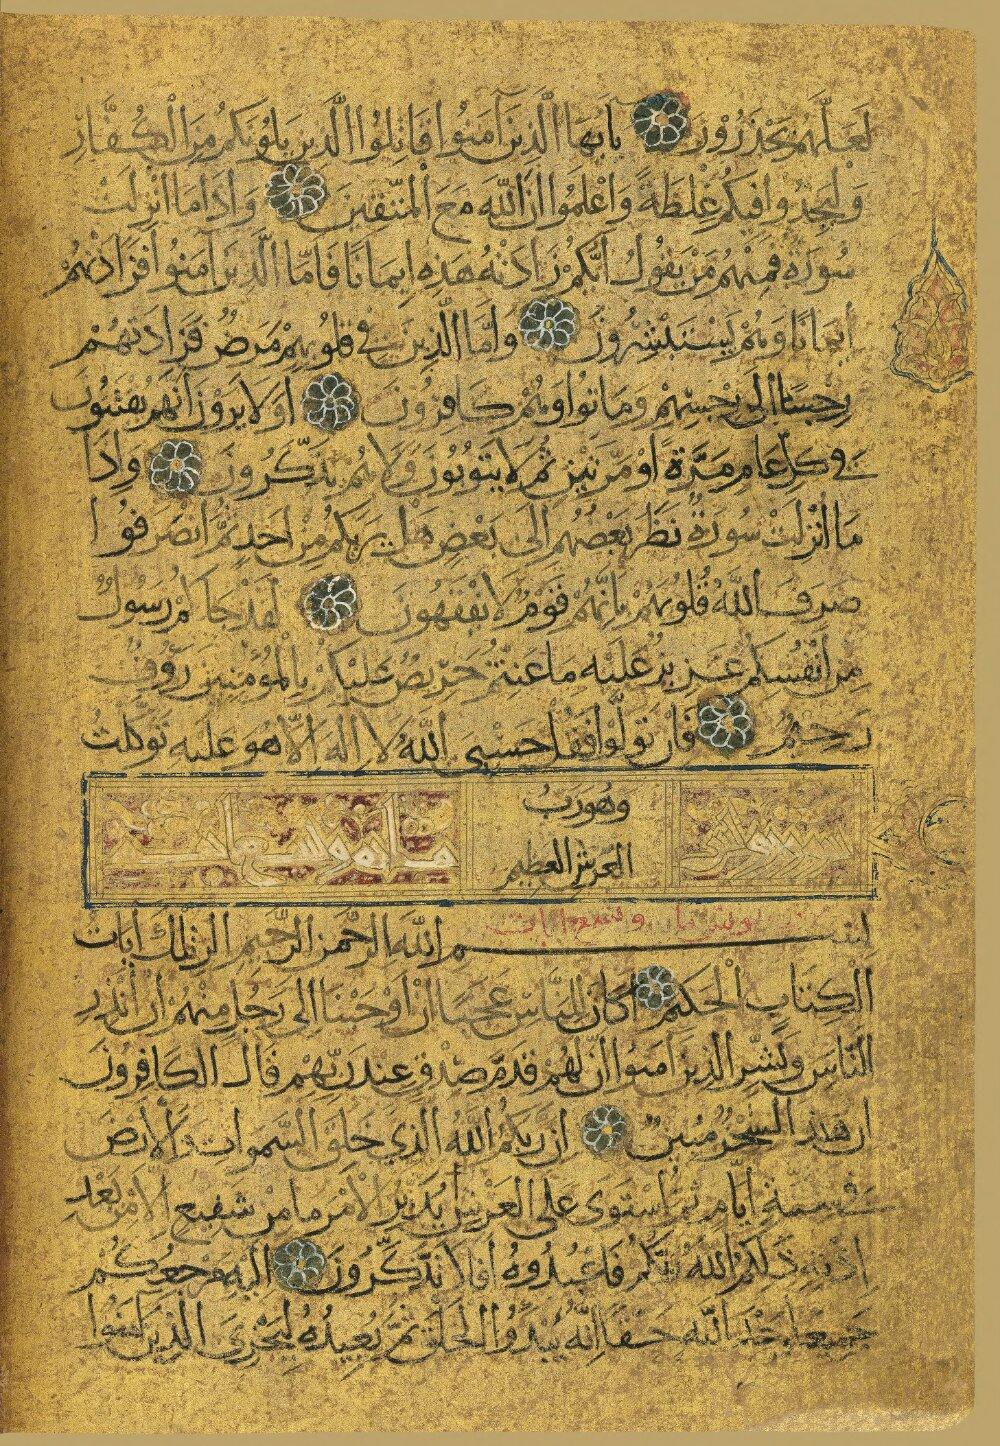 لَعَلَّهُمْ يَحْذَرُونَ يا أيها الَّذِينَ آمَنُوا قَاتِلُوا الَّذِينَ يَلُونَكُمْ مِنَ الْكُفَّارِ
وَلْيَجِدُوا فِيكُمْ غِلْظَةً وَاعْلَمُوا أَنَّ اللَّهَ مَعَ الْمُتَّقِينَ وَإِذَا مَا أُنْزِلَتْ
سُورَةٌ فَمِنْهُمْ مَنْ يَقُولُ أَيُّكُمْ زَادَتْهُ هَذِهِ إِيمَانًا فَأَمَّا الَّذِينَ آمَنُوا فَزَادَتْهُمْ
إِيمَانًا وَهُمْ يَسْتَبْشِرُونَ وَأَمَّا الَّذِينَ فِي قُلُوبِهِمْ مَرَضٌ فَزَادَتْهُمْ
رِجْسًا إِلَى رِجْسِهِمْ وَمَاتُوا وَهُمْ كَافِرُونَ أَوَلَا يَرَوْنَ أَنَّهُمْ يُفْتَنُونَ
فِي كُلِّ عَامٍ مَرَّةً أَوْ مَرَّتَيْنِ ثُمَّ لَا يَتُوبُونَ وَلَا هُمْ يَذَّكَّرُونَ وَإِذَا
مَا أُنْزِلَتْ سُورَةٌ نَظَرَ بَعْضُهُمْ إِلَى بَعْضٍ هَلْ يَرَاكُمْ مِنْ أَحَدٍ ثُمَّ انْصَرَفُوا
صَرَفَ اللَّهُ قُلُوبَهُمْ بِأَنَّهُمْ قَوْمٌ لَا يَفْقَهُونَ لَقَدْ جَاكُمْ رَسُولٌ
مِنْ أَنْفُسِكُمْ عَزِيزٌ عَلَيْهِ مَا عَنِتُّمْ حَرِيصٌ عَلَيْكُمْ بِالْمُؤْمِنِينَ رَؤُوفٌ
رَحِيمٌ فَإِنْ تَوَلَّوْا فَقُلْ حَسْبِيَ اللَّهُ لَا إِلَهَ إِلَّا هُوَ عَلَيْهِ تَوَكَّلْتُ
وَهُوَ رَبُّ
الْعَرْشِ الْعَظِيمِ
بسم اللَّهِ الرَّحْمَنِ الرَّحِيمِ الر تِلْكَ آيَاتُ
الْكِتَابِ الْحَكِيمِ أَكَانَ لِلنَّاسِ عَجَبًا أَنْ أَوْحَيْنَا إِلَى رَجُلٍ مِنْهُمْ أَنْ أَنْذِرِ
النَّاسَ وَبَشِّرِ الَّذِينَ آمَنُوا أَنَّ لَهُمْ قَدَمَ صِدْقٍ عِنْدَ رَبِّهِمْ قَالَ الْكَافِرُونَ
إِنَّ هَذَا لَسِحْرٌ مُبِينٌ إِنَّ رَبَّكُمُ اللَّهُ الَّذِي خَلَقَ السَّمَوَاتِ وَالْأَرْضَ
فِي سِتَّةِ أَيَّامٍ ثُمَّ اسْتَوَى عَلَى الْعَرْشِ يُدَبِّرُ الْأَمْرَ مَا مِنْ شَفِيعٍ إِلَّا مِنْ بَعْدِ
إِذْنِهِ ذَلِكُمُ اللَّهُ رَبُّكُمْ فَاعْبُدُوهُ أَفَلَا تَذَكَّرُونَ إِلَيْهِ مَرْجِعُكُمْ
جَمِيعًا وَعْدَ اللَّهِ حَقًّا إِنَّهُ يَبْدَؤُا الْخَلْقَ ثُمَّ يُعِيدُهُ لِيَجْزِيَ الَّذِينَ آمَنُوا